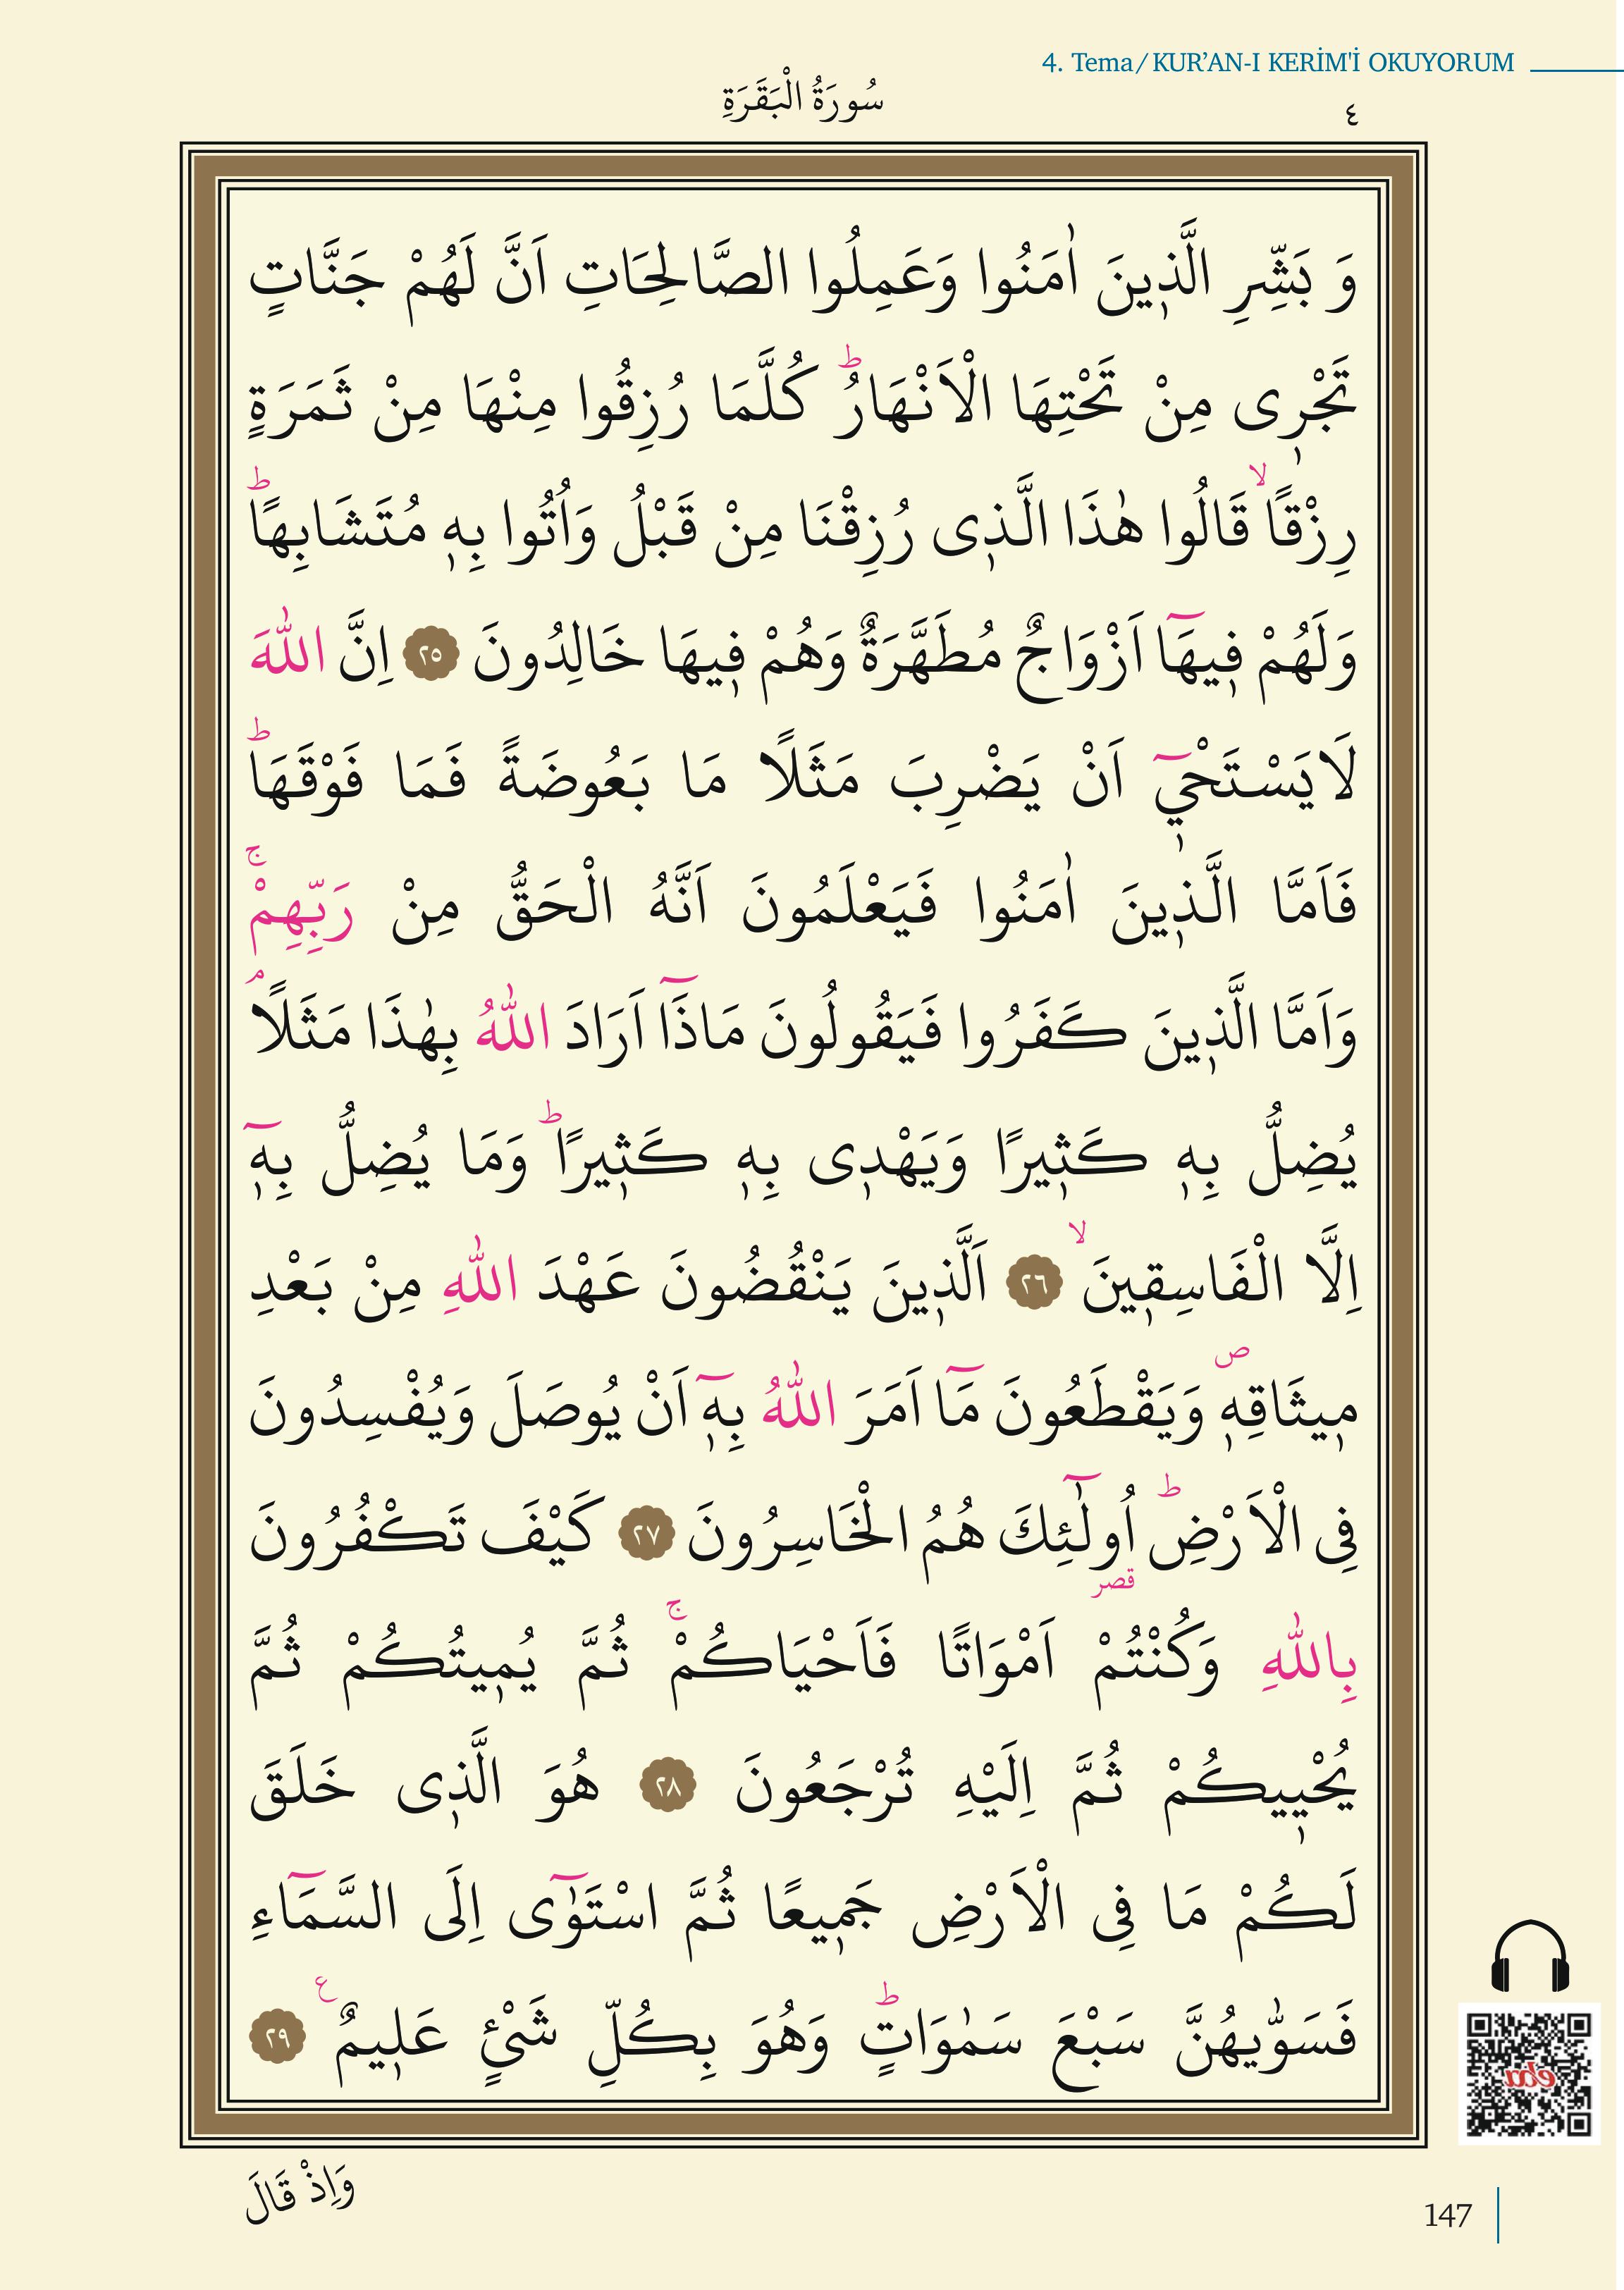 4. Tema/ KUR’AN-I KERİM'İ OKUYORUM
سُورَةُ الْبَقَرَةِ
٤
وَ بَشِّرِ الَّذ۪ينَ اٰمَنُوا وَعَمِلُوا الصَّالِحَاتِ اَنَّ لَهُمْ جَنَّاتٍ
تَجْر۪ى مِنْ تَحْتِهَا الْاَنْهَارُۜ كُلَّمَا رُزِقُوا مِنْهَا مِنْ ثَمَرَةٍ
رِزْقًاۙ قَالُوا هٰذَا الَّذ۪ى رُزِقْنَا مِنْ قَبْلُ وَاُتُوا بِه۪ مُتَشَابِهًاۜ
وَلَهُمْ ف۪يهَٓا اَزْوَاجٌ مُطَهَّرَةٌ وَهُمْ ف۪يهَا خَالِدُونَ ٢٥ اِنَّ اللّٰهَ
لَايَسْتَحْي۪ٓ اَنْ يَضْرِبَ مَثَلًا مَا بَعُوضَةً فَمَا فَوْقَهَاۜ
فَاَمَّا الَّذ۪ينَ اٰمَنُوا فَيَعْلَمُونَ اَنَّهُ الْحَقُّ مِنْ رَبِّهِمْۚ
وَاَمَّا الَّذ۪ينَ كَفَرُوا فَيَقُولُونَ مَاذَٓا اَرَادَ اللّٰهُ بِهٰذَا مَثَلًاۢ
يُضِلُّ بِه۪ كَث۪يرًا وَيَهْد۪ى بِه۪ كَث۪يرًاۜ وَمَا يُضِلُّ بِه۪ٓ
اِلَّا الْفَاسِق۪ينَۙ ٢٦ اَلَّذ۪ينَ يَنْقُضُونَ عَهْدَ اللّٰهِ مِنْ بَعْدِ
م۪يثَاقِه۪ۖ وَيَقْطَعُونَ مَٓا اَمَرَ اللّٰهُ بِه۪ٓ اَنْ يُوصَلَ وَيُفْسِدُونَ
فِى الْاَرْضِۜ اُولٰٓئِكَ هُمُ الْخَاسِرُونَ ٢٧ كَيْفَ تَكْفُرُونَ
قصر
بِاللّٰهِ وَكُنْتُمْ اَمْوَاتًا فَاَحْيَاكُمْۚ ثُمَّ يُم۪يتُكُمْ ثُمَّ
يُحْي۪يكُمْ ثُمَّ اِلَيْهِ تُرْجَعُونَ ٢٨ هُوَ الَّذ۪ى خَلَقَ
لَكُمْ مَا فِى الْاَرْضِ جَم۪يعًا ثُمَّ اسْتَوٰٓى اِلَى السَّمَٓاءِ
فَسَوّٰيهُنَّ سَبْعَ سَمٰوَاتٍۜ وَهُوَ بِكُلِّ شَىْءٍ عَل۪يمٌ ع ٢٩
eba
وَاِذْ قَالَ
147